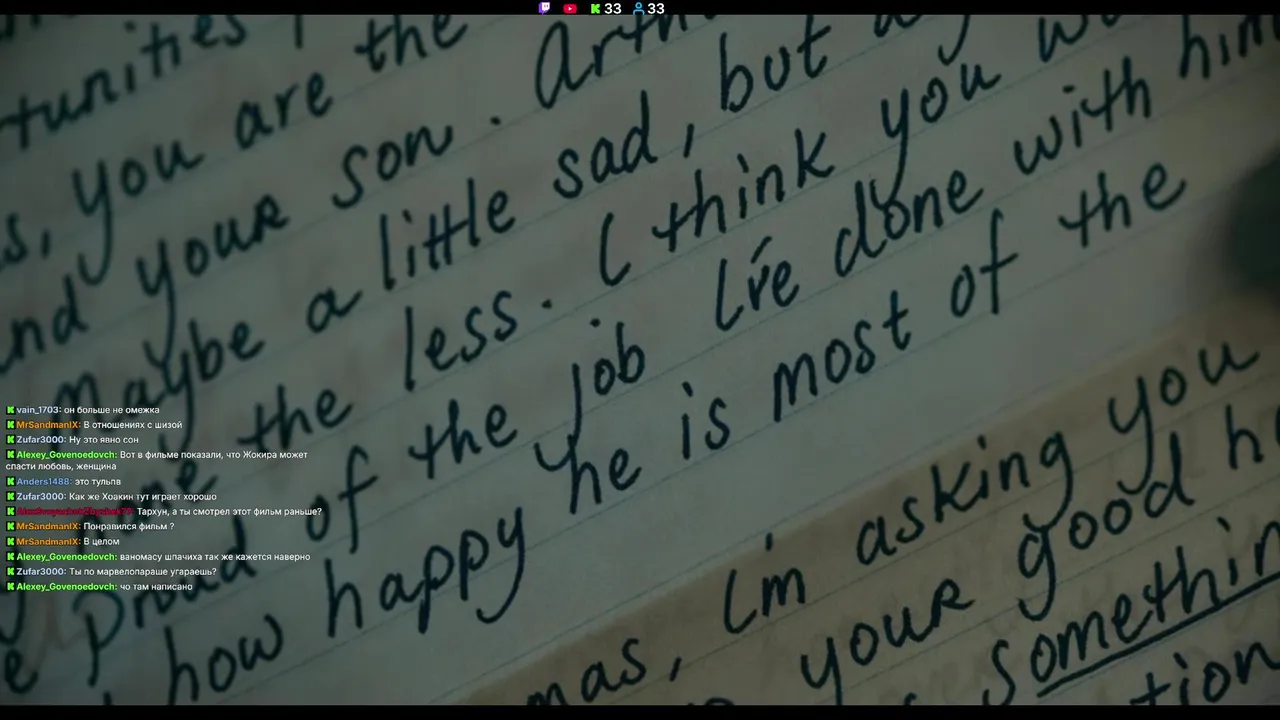 33 33
tunities
s, you are the
and your son. Arth
Maybe a little sad, but
the less. I think you
Proud of the job I've done with him
how happy he is most of the
mas, I'm asking you
your good h
somethin
tion
vain_1703: он больше не омежка
MrSandmanIX: В отношениях с шизой
Zufar3000: Ну это явно сон
Alexey_Govenoedovch: Вот в фильме показали, что Жокира может
спасти любовь, женщина
Anders1488: это тульпв
Zufar3000: Как же Хоакин тут играет хорошо
Тархун, а ты смотрел этот фильм раньше?
MrSandmanIX: Понравился фильм ?
MrSandmanIX: В целом
Alexey_Govenoedovch: ваномасу шпачиха так же кажется наверно
Zufar3000: Ты по марвелопараше угараешь?
Alexey_Govenoedovch: чо там написано